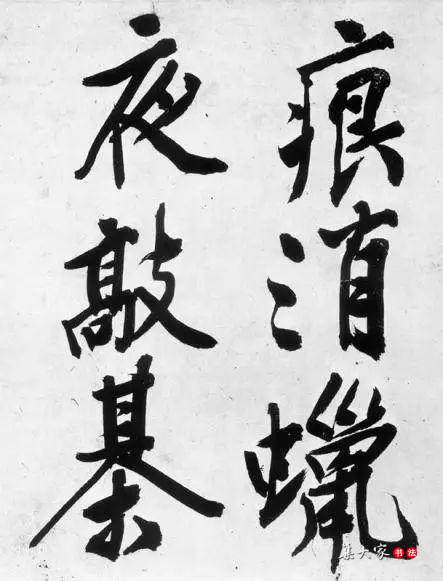 痕消蠟
夜敲棊
集大家 书法